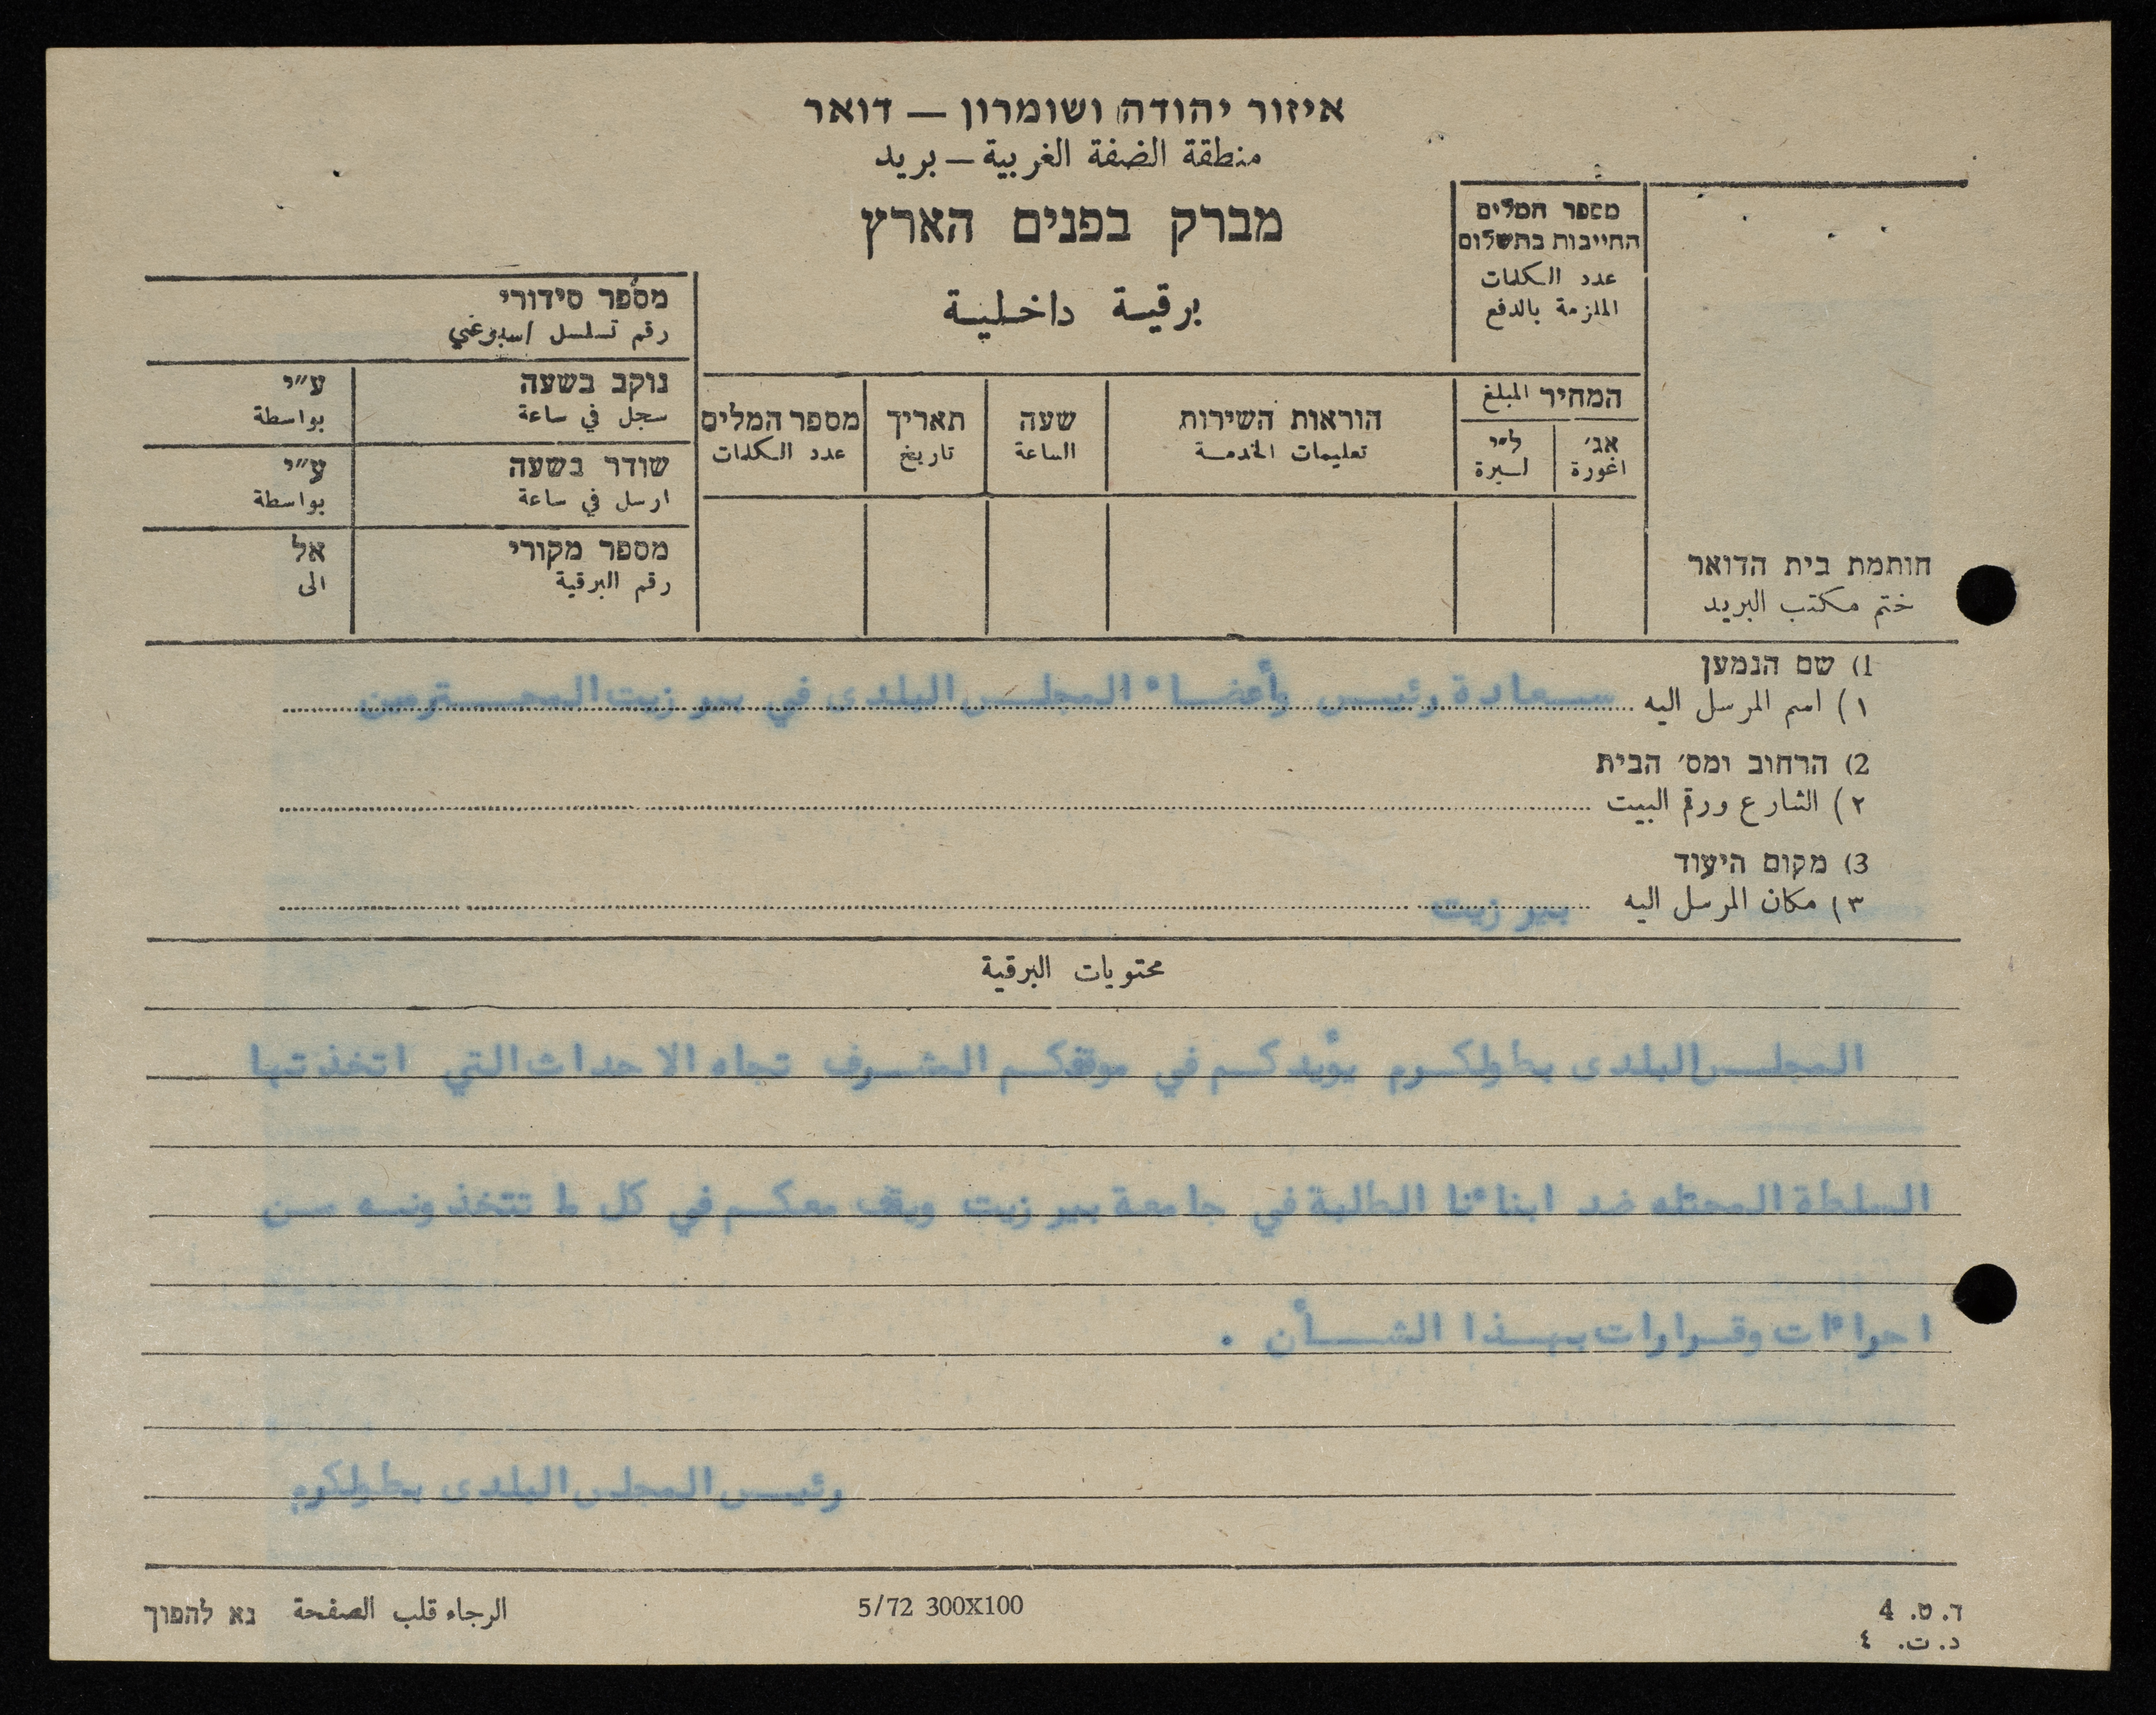 איזור יהודה ושומרון — דואר
منطقة الضفة الغربية — بريد
מברק בפנים הארץ
برقية داخلية
מספר המלים
החייבות בתשלום
عدد الكلمات
الملزمة بالدفع
מספר סידורי
رقم تسلسل اسبوعي
נוקב בשעה ע״י
سجل في ساعة بواسطة
שודר בשעה ע״י
ارسل في ساعة بواسطة
מספר מקורי אל
رقم البرقية الى
המחיר المبلغ
אג׳ ל״י
اغورة ليرة
הוראות השירות
تعليمات الخدمة
שעה
الساعة
תאריך
تاريخ
מספר המלים
عدد الكلمات
חותמת בית הדואר
ختم مكتب البريد
1) שם הנמען
١) اسم المرسل اليه سعادة رئيس وأعضاء المجلس البلدى في بير زيت المحترمين
2) הרחוב ומס׳ הבית
٢) الشارع ورقم البيت
3) מקום היעוד
٣) مكان المرسل اليه بير زيت
محتويات البرقية
المجلس البلدى بطولكرم يؤيدكم في موقفكم المشرف تجاه الاحداث التي اتخذتها
السلطة المحتله ضد ابناءنا الطلبة في جامعة بير زيت ويقف معكم في كل ما تتخذونه من
اجراءات وقرارات بهذا الشأن .
رئيس المجلس البلدى بطولكرم
ד. ט. 4
د. ت. ٤
5/72 300X100
الرجاء قلب الصفحة נא להפוך